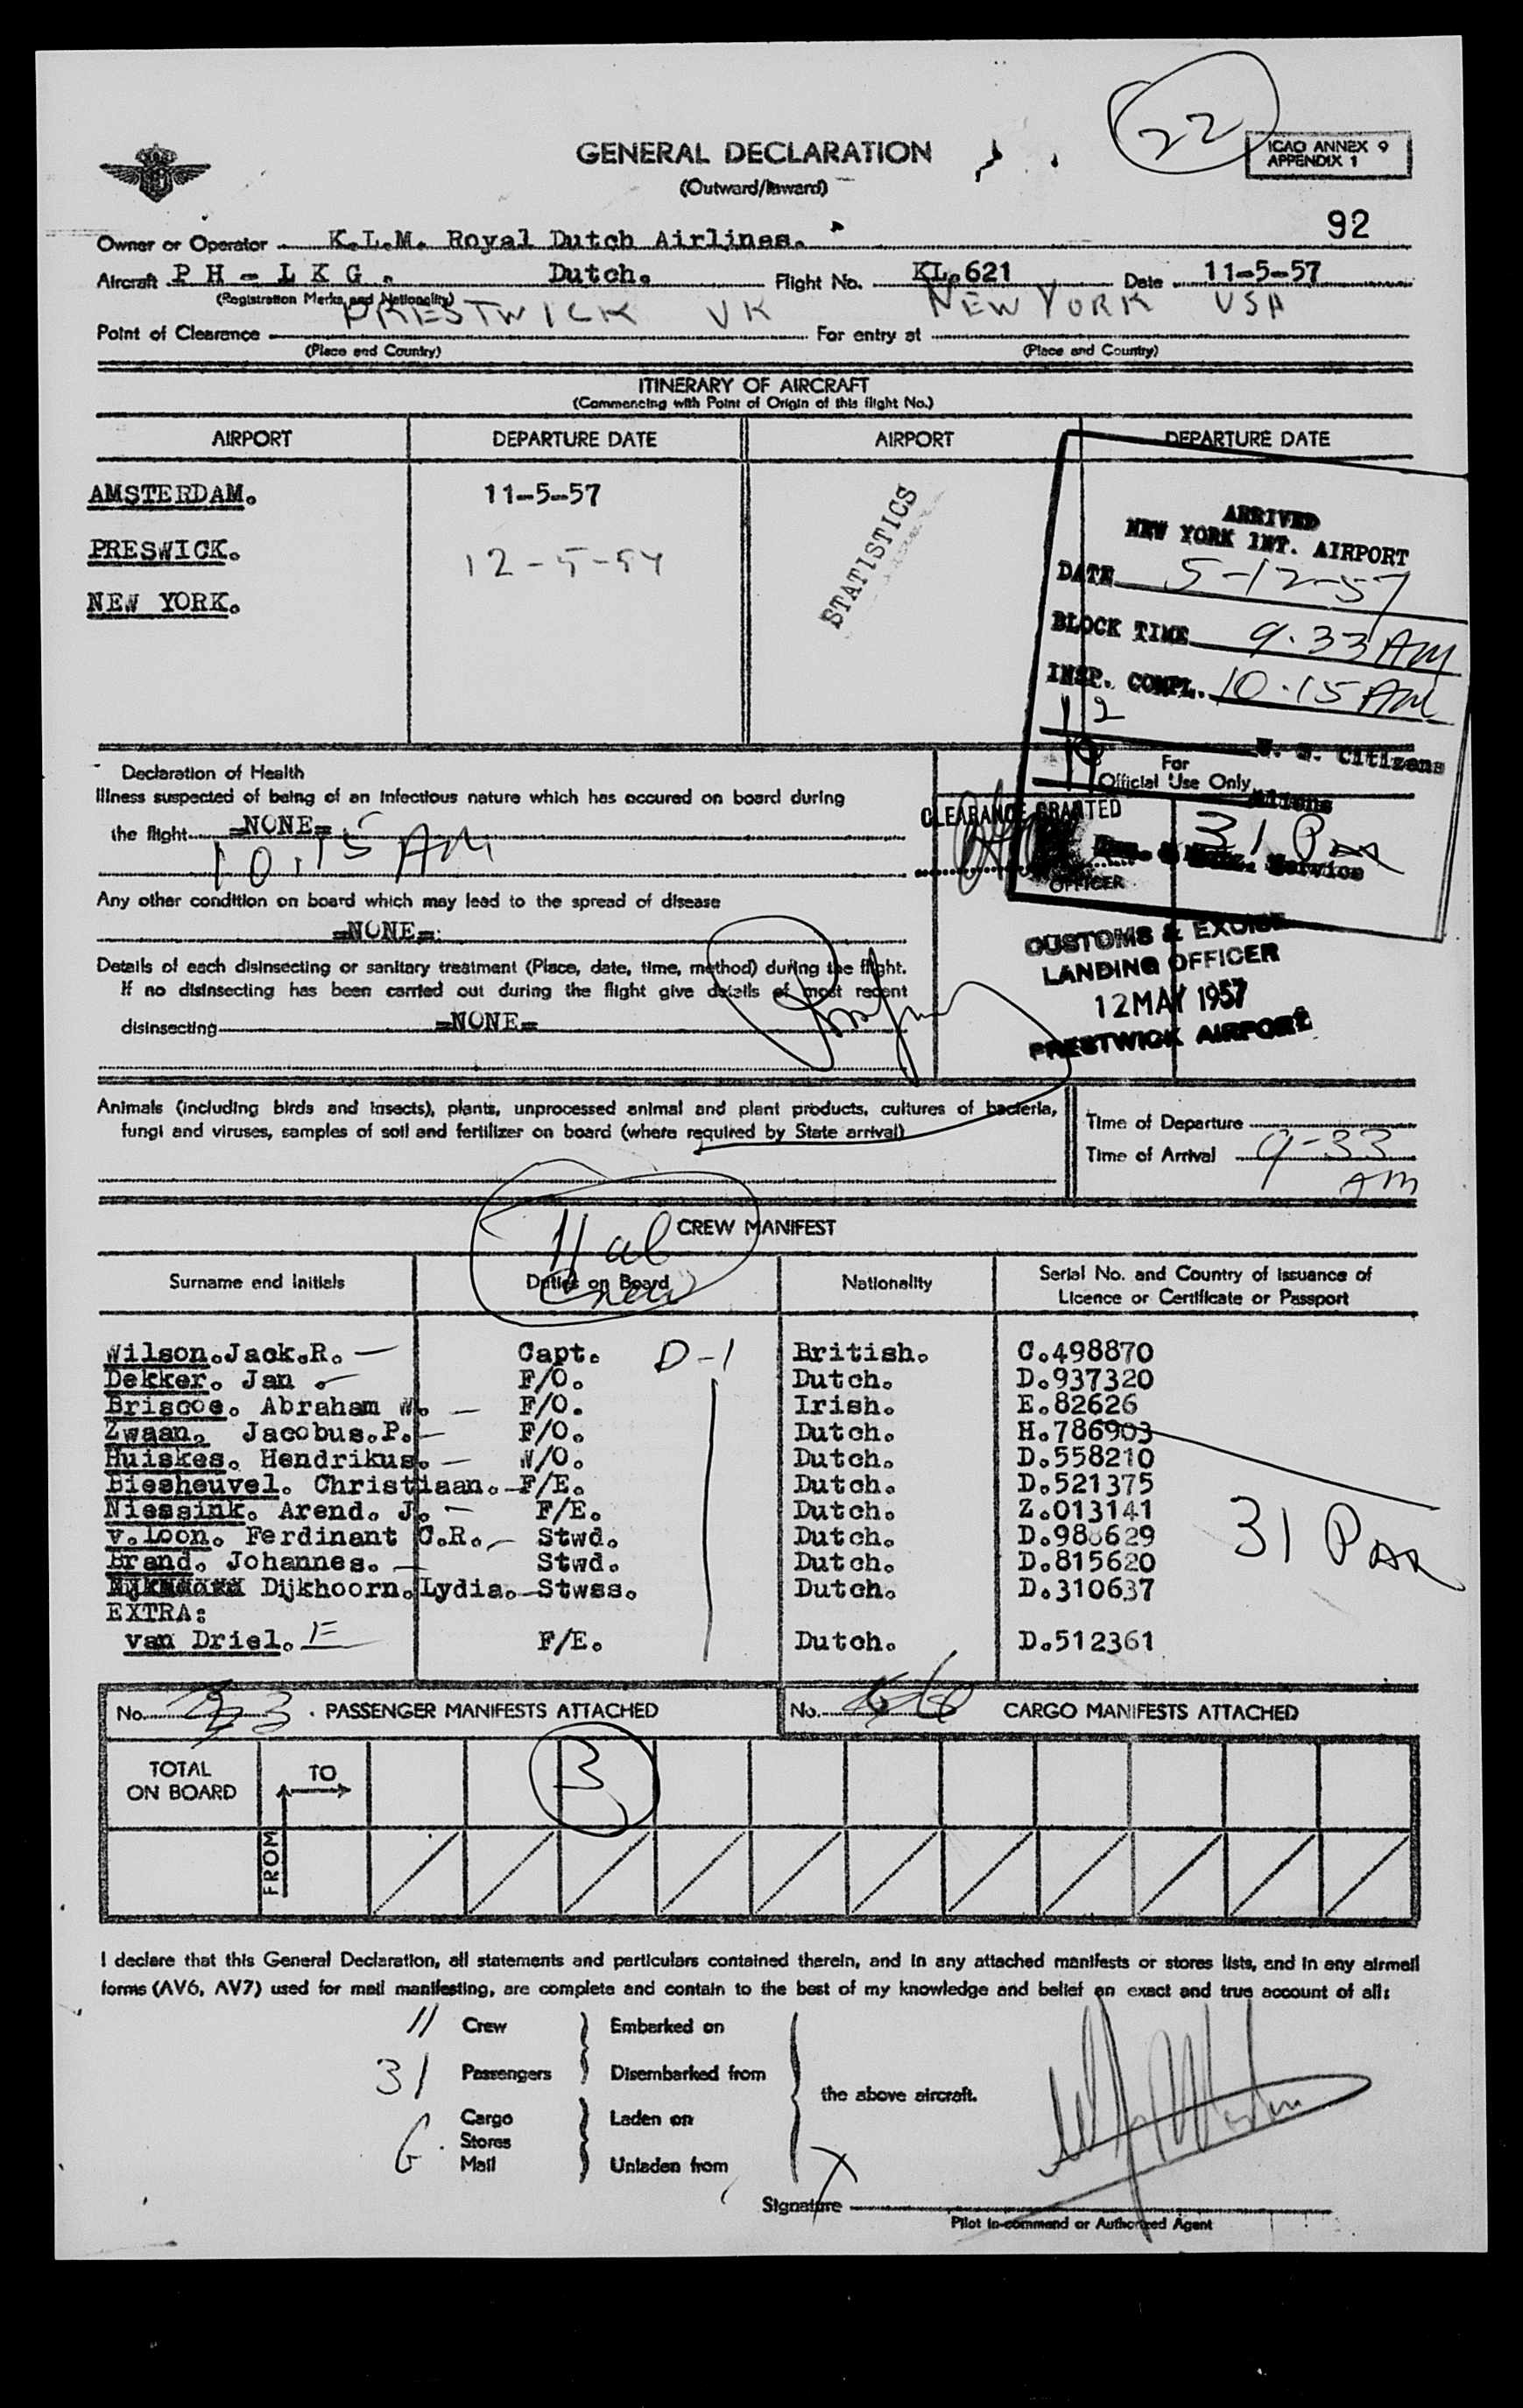 22
GENERAL DECLARATION
(Outward/Inward)
ICAO ANNEX 9
APPENDIX 1
92
Owner or Operator K.L.M. Royal Dutch Airlines.
Aircraft PH-LKG. Dutch. Flight No. KL.621 Date 11-5-57
(Registration Marks and Nationality)
PRESTWICK UK NEW YORK USA
Point of Clearance For entry at
(Place and Country) (Place and Country)
ITINERARY OF AIRCRAFT
(Commencing with Point of Origin of this flight No.)
AIRPORT DEPARTURE DATE AIRPORT DEPARTURE DATE
AMSTERDAM. 11-5-57
PRESWICK. 12-5-57
NEW YORK.
STATISTICS
ARRIVED
NEW YORK INT. AIRPORT
DATE 5-12-57
BLOCK TIME 9.33 AM
INSP. COMPL. 10.15 AM
12 U. S. Citizens
19 Aliens
For
Official Use Only
31 Pax
CLEARANCE GRANTED
OFFICER
Declaration of Health
Illness suspected of being of an infectious nature which has occured on board during
the flight =NONE=
10.15 AM
Any other condition on board which may lead to the spread of disease
=NONE=
Details of each disinsecting or sanitary treatment (Place, date, time, method) during the flight.
If no disinsecting has been carried out during the flight give details of most recent
disinsecting =NONE=
CUSTOMS & EXCISE
LANDING OFFICER
12 MAY 1957
PRESTWICK AIRPORT
Animals (including birds and insects), plants, unprocessed animal and plant products, cultures of bacteria,
fungi and viruses, samples of soil and fertilizer on board (where required by State arrival)
Time of Departure
Time of Arrival 9-33
AM
11 al
Crew
CREW MANIFEST
Surname and initials Duties on Board Nationality Serial No. and Country of issuance of
Licence or Certificate or Passport
Wilson.Jack.R. Capt. D-1 British. C.498870
Dekker. Jan F/O. Dutch. D.937320
Briscoe. Abraham W. F/O. Irish. E.82626
Zwaan. Jacobus.P. F/O. Dutch. H.786903
Huiskes. Hendrikus. W/O. Dutch. D.558210
Biesheuvel. Christiaan. F/E. Dutch. D.521375
Niessink. Arend. J. F/E. Dutch. Z.013141
v.Loon. Ferdinant C.R. Stwd. Dutch. D.988629
Brand. Johannes. Stwd. Dutch. D.815620
Dijkhoorn.Lydia. Stwss. Dutch. D.310637
31 Pax
EXTRA:
van Driel. F/E. Dutch. D.512361
No. 3 . PASSENGER MANIFESTS ATTACHED No. CARGO MANIFESTS ATTACHED
TOTAL
ON BOARD
TO
FROM
3
I declare that this General Declaration, all statements and particulars contained therein, and in any attached manifests or stores lists, and in any airmail
forms (AV6, AV7) used for mail manifesting, are complete and contain to the best of my knowledge and belief an exact and true account of all:
11 Crew Embarked on
31 Passengers Disembarked from
the above aircraft.
Cargo Laden on
Stores
6. Mail Unladen from
X
Signature
Pilot in-command or Authorized Agent